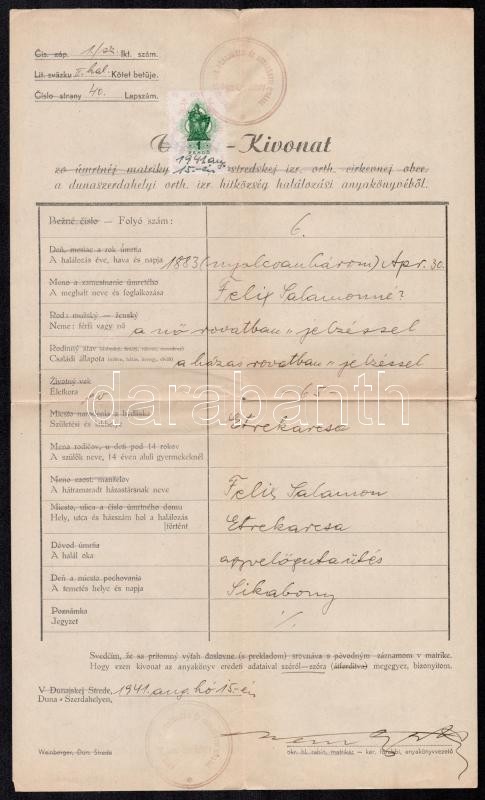 Čís. záp. 1/sz. Ikt. szám.
Lit. sväzku II. hal. Kötet betüje.
Číslo strany 40. Lapszám.
1
1941 aug.
15-én
-Kivonat
zo úmrtnéj matriky stredskej izr. orth. cirkevnej obce.
a dunaszerdahelyi orth. izr. hitközség halálozási anyakönyvéből.
Bežné číslo — Folyó szám: 6.
Deň, mesiac a rok úmrtia
A halálozás éve, hava és napja 1883 (nyolcvanhárom) Apr. 30.
Meno a zamestnanie úmretého
A meghalt neve és foglalkozása Felix Salamonné?
Rod: mužský — ženský
Neme: férfi vagy nő a nő rovatban „ jelzéssel
Rodinný stav
Családi állapota a házas rovatban „ jelzéssel
Životný vek
Életkora 65
Miesto narodenia a bydliska
Születési és Etrekarcsa
Mená rodičov, u detí pod 14 rokov
A szülők neve, 14 éven aluli gyermekeknél
Meno zaost. manželov
A hátramaradt házastársnak neve Felix Salamon
Miesto, ulica a číslo úmrtného domu
Hely, utca és házszám hol a halálozás Etrekarcsa
[történt
Dôvod úmrtia
A halál oka agyvelőgutaütés
Deň a miesto pochovania
A temetés helye és napja Sikabony
Poznámka
Jegyzet ·/.
Svedčím, že sa prítomný výťah doslovne (s prekladom) srovnáva s pôvodným záznamom v matrike.
Hogy ezen kivonat az anyakönyv eredeti adataival szóról—szóra (átfordítva) megegyez, bizonyítom.
V Dunajskej Strede, 1941. aug. hó 15-én
Duna-Szerdahelyen,
Weinberger, Dun. Streda
okr. hl. rabín, matrikár — ker. főrabbi, anyakönyvvezető
darabanth